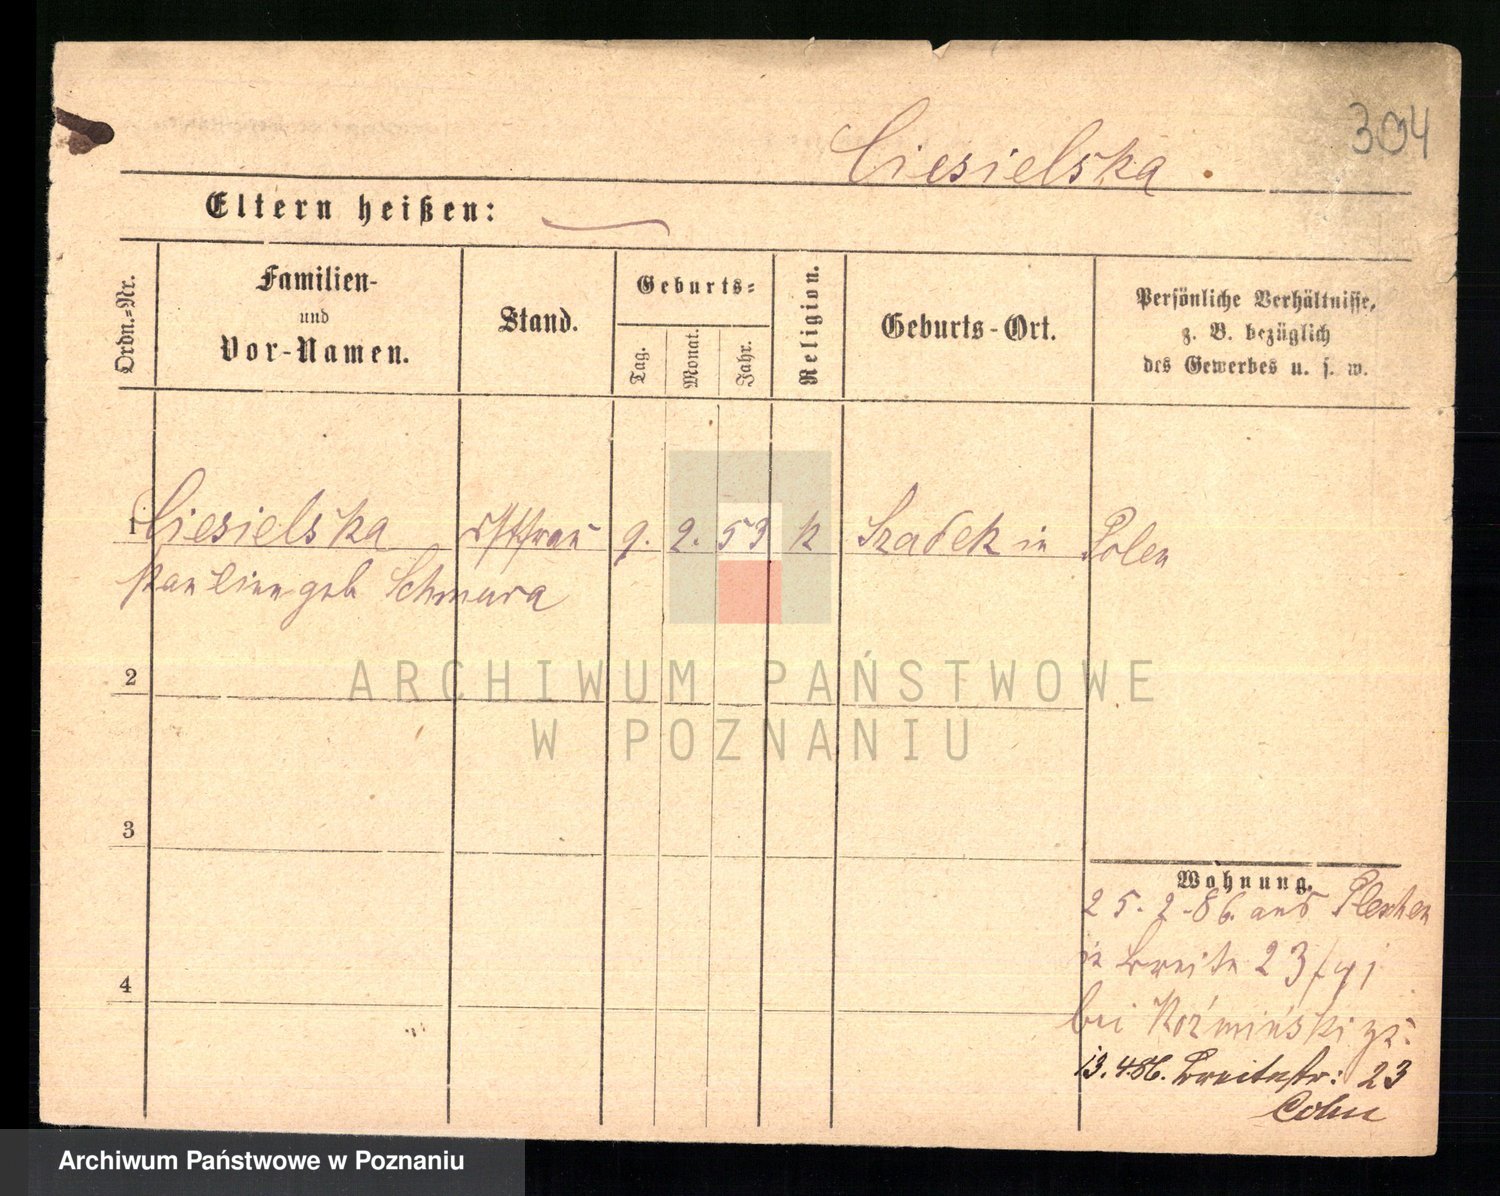 304
Ciesielska
Eltern heißen:
Ordn.-Nr.
Familien-
und
Vor-Namen.
Stand.
Geburts-
Tag.
Monat.
Jahr.
Religion.
Geburts-Ort.
Persönliche Verhältnisse,
z. B. bezüglich
des Gewerbes u. s. w.
1 Ciesielska 9. 2. 53 k Szadek in Polen
geb Schmura
2
3
4
Wohnung.
25. 2. 86. aus Pleschen
in Breite 23
bei Koźmiński
13.4.86. Breitestr: 23
Cohn
ARCHIWUM PAŃSTWOWE
W POZNANIU
Archiwum Państwowe w Poznaniu